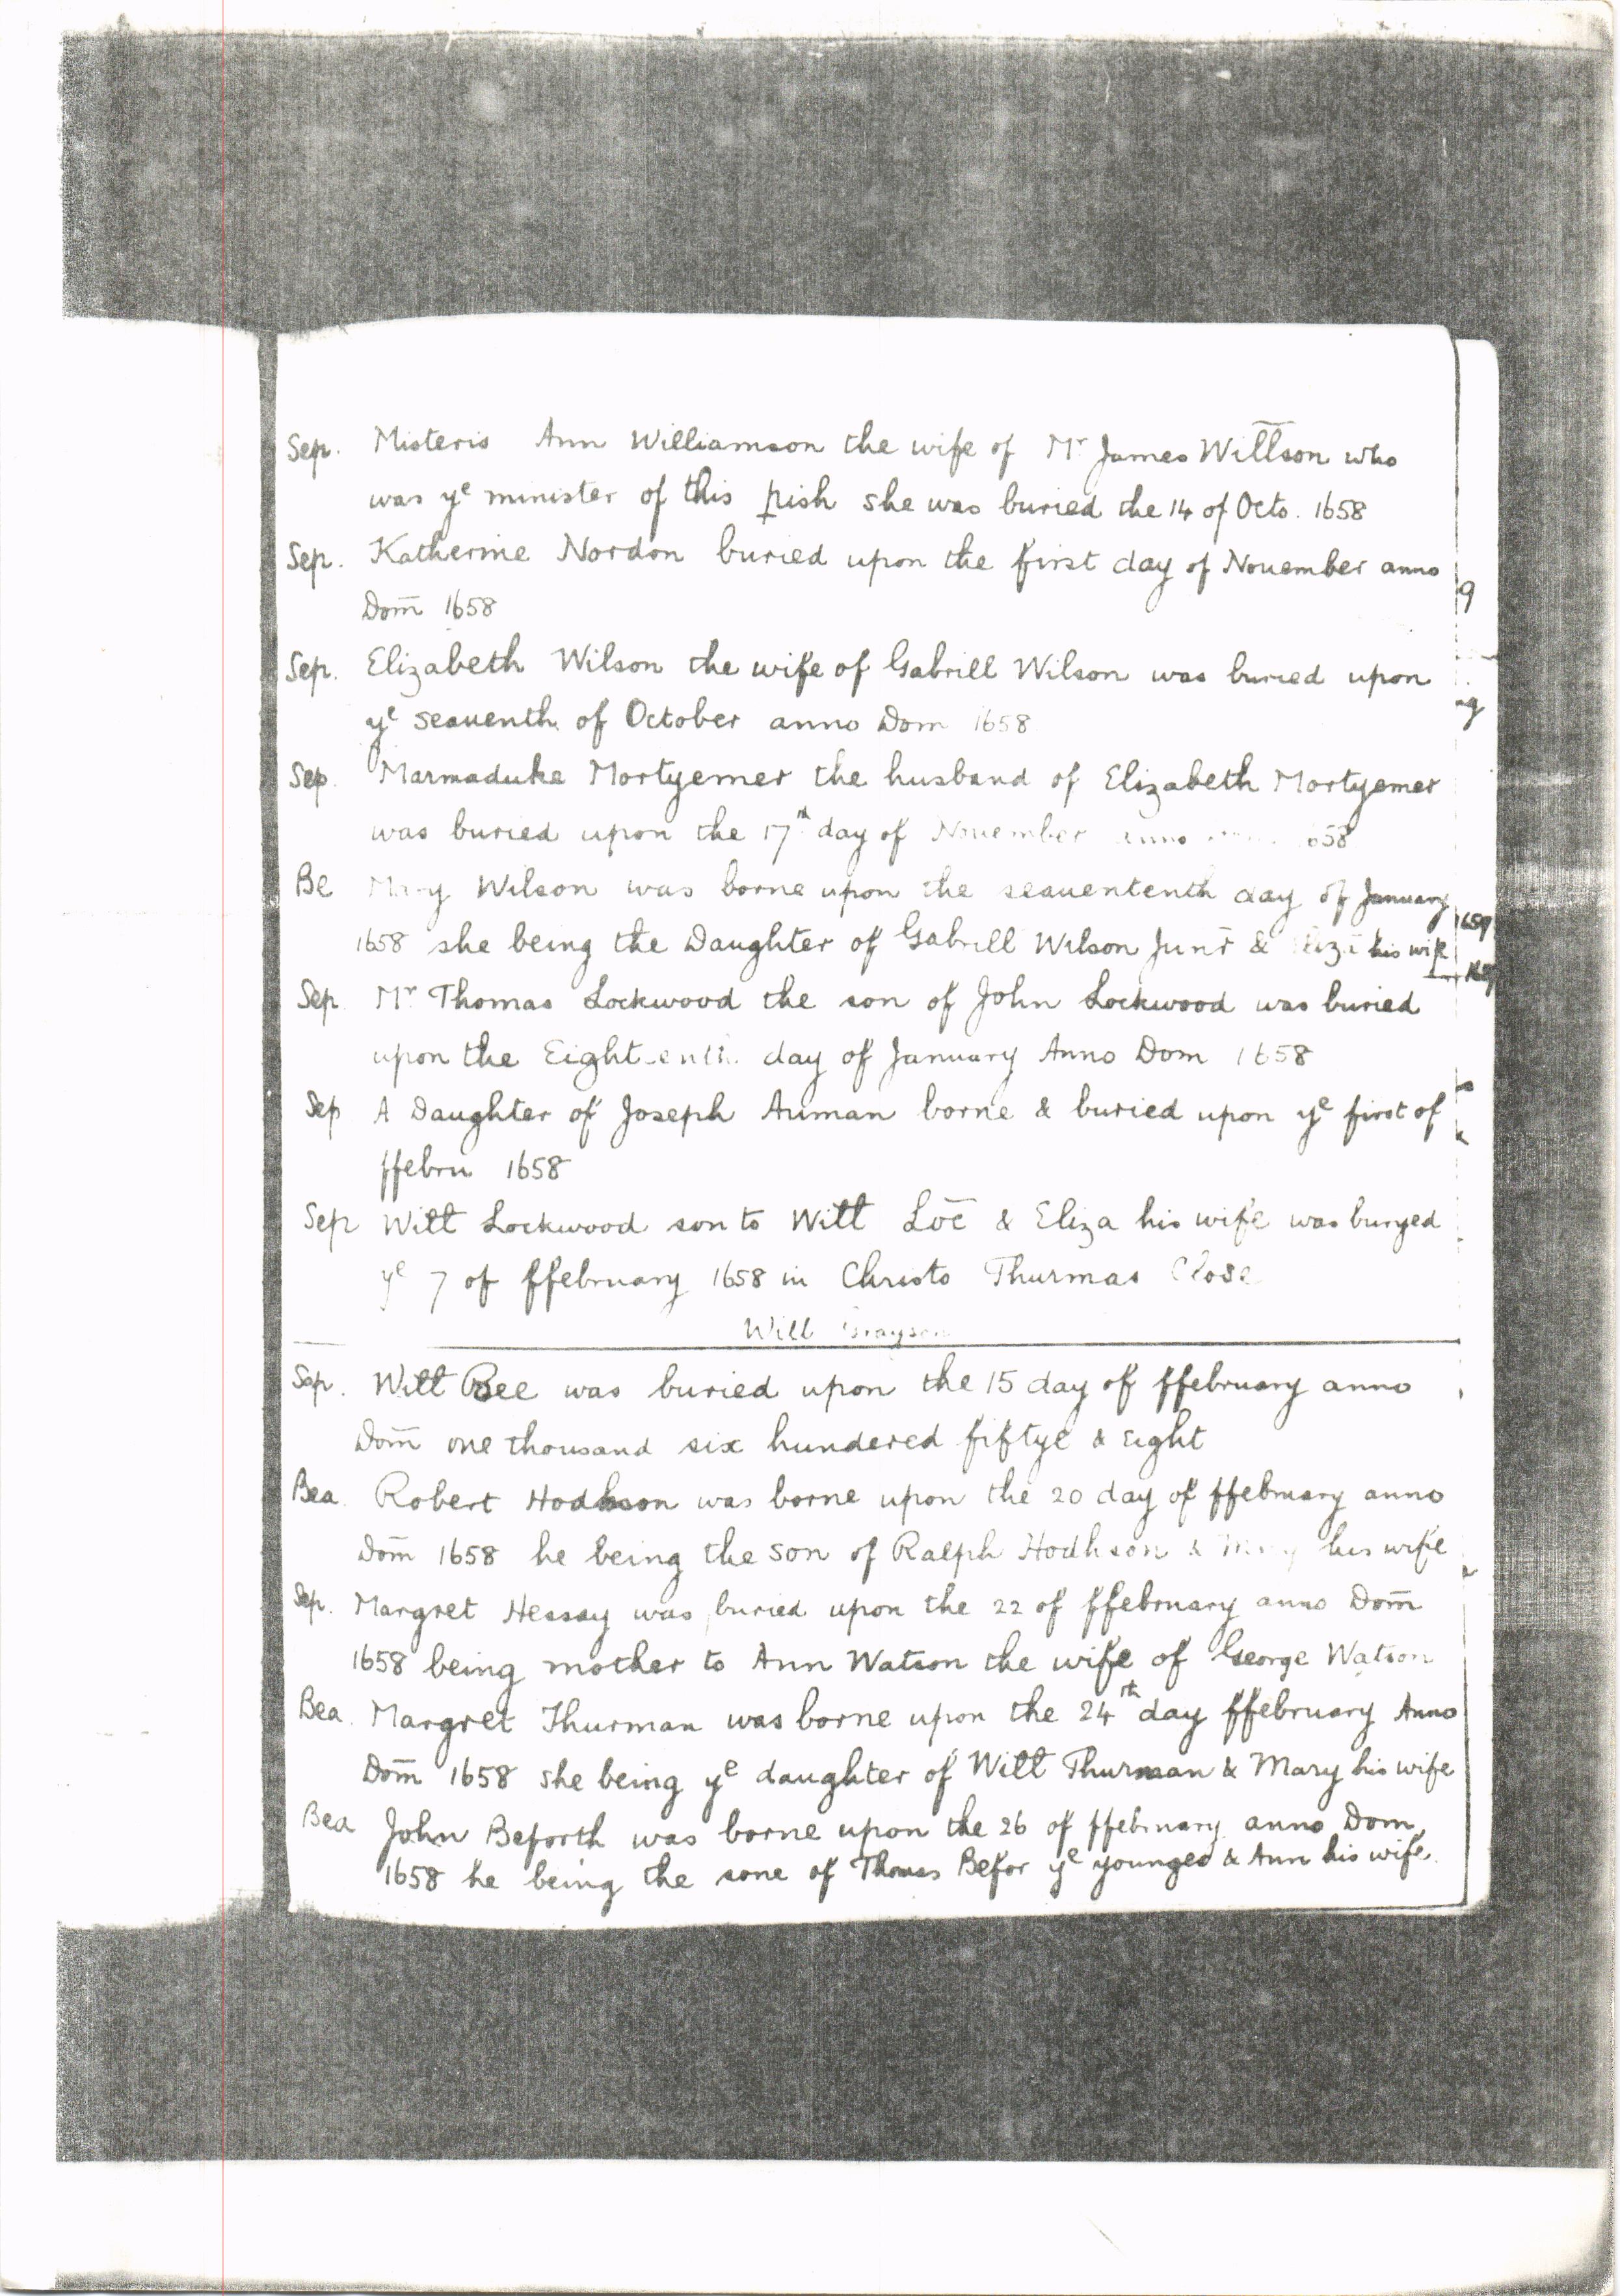 Sep. Misteris Ann Williamson the wife of Mr James Willson who
was ye minister of this pish she was buried the 14 of Octo. 1658
Sep. Katherine Nordon buried upon the first day of Nouember anno
Dom̅ 1658
Sep. Elizabeth Wilson the wife of Gabrill Wilson was buried upon
ye seauenth of October anno Dom 1658
Sep. Marmaduke Mortyemer the husband of Elizabeth Mortyemer
was buried upon the 17th day of Nouember anno 1658
Be Mary Wilson was borne upon the seauententh day of January
1658 she being the Daughter of Gabrill Wilson Junr̅ & Eliza his wife
Sep. Mr Thomas Lockwood the son of John Lockwood was buried
upon the Eightenth day of January Anno Dom 1658
Sep A Daughter of Joseph Auman borne & buried upon ye first of
ffebru 1658
Sep Will Lockwood son to Will Loc̅ & Eliza his wife was buryed
ye 7 of ffebruary 1658 in Christo Thurmas Close
Will Grayson
Sep. Will Bee was buried upon the 15 day of ffebruary anno
Dom̅ one thousand six hundered fiftye & Eight
Bea. Robert Hodhson was borne upon the 20 day of ffebruary anno
Dom̅ 1658 he being the son of Ralph Hodhson & Mary his wife
Sep. Margret Hessay was buried upon the 22 of ffebruary anno Dom̅
1658 being mother to Ann Watson the wife of George Watson
Bea. Margret Thurman was borne upon the 24th day ffebruary Anno
Dom̅ 1658 she being ye daughter of Will Thurman & Mary his wife
Bea John Beforth was borne upon the 26 of ffebruary anno Dom,
1658 he being the sone of Thomas Befor ye younged & Ann his wife.